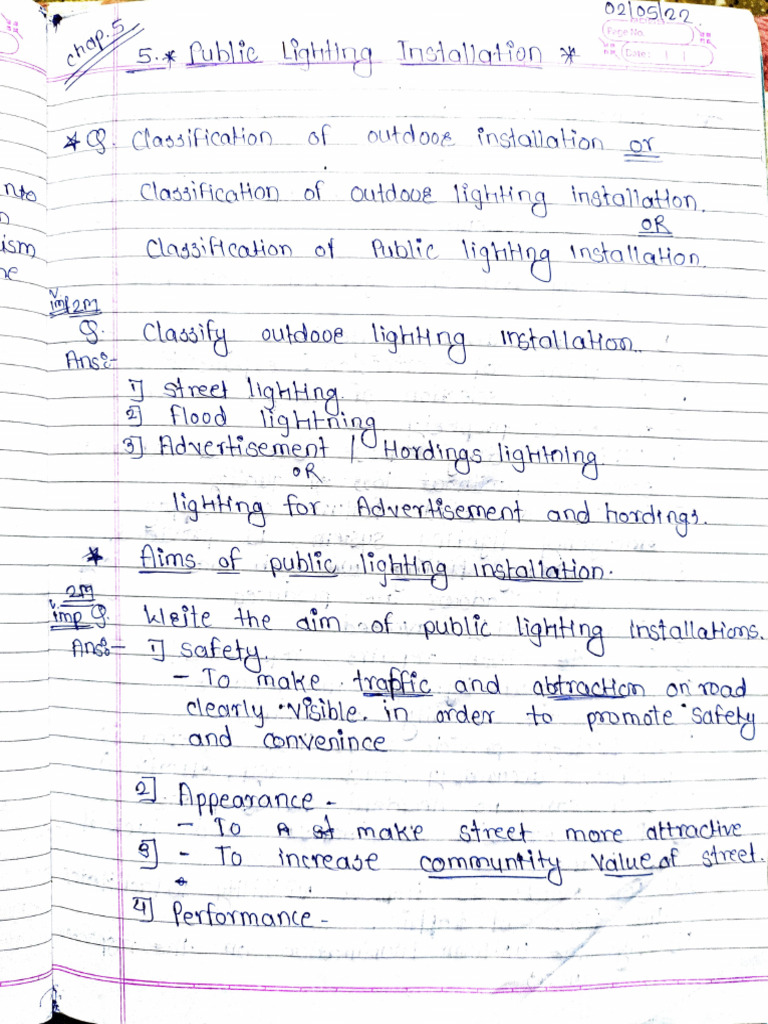 02/05/22
Chap. 5
Page No.
Date: | |
5. * Public Lighting Installation *
* Q. Classification of outdooe installation or
Classification of outdooe lighting installation.
OR
Classification of Public lighting installation.
nto
n
ism
he
V
imp 2M
Q. Classify outdooe lighting installation.
Ans:-
1] street lighting
2] flood lightning
3] Advertisement / Hordings lightning
OR
lighting for Advertisement and hordings.
* Aims of public lighting installation.
2M
V imp Q. Weite the aim of public lighting installations.
Ans:- 1] safety.
- To make traffic and abtraction on road
clearly visible. in order to promote safety
and convenince
2] Appearance -
- To make street more attractive
3] - To increase communtity value of street.
4] Performance -